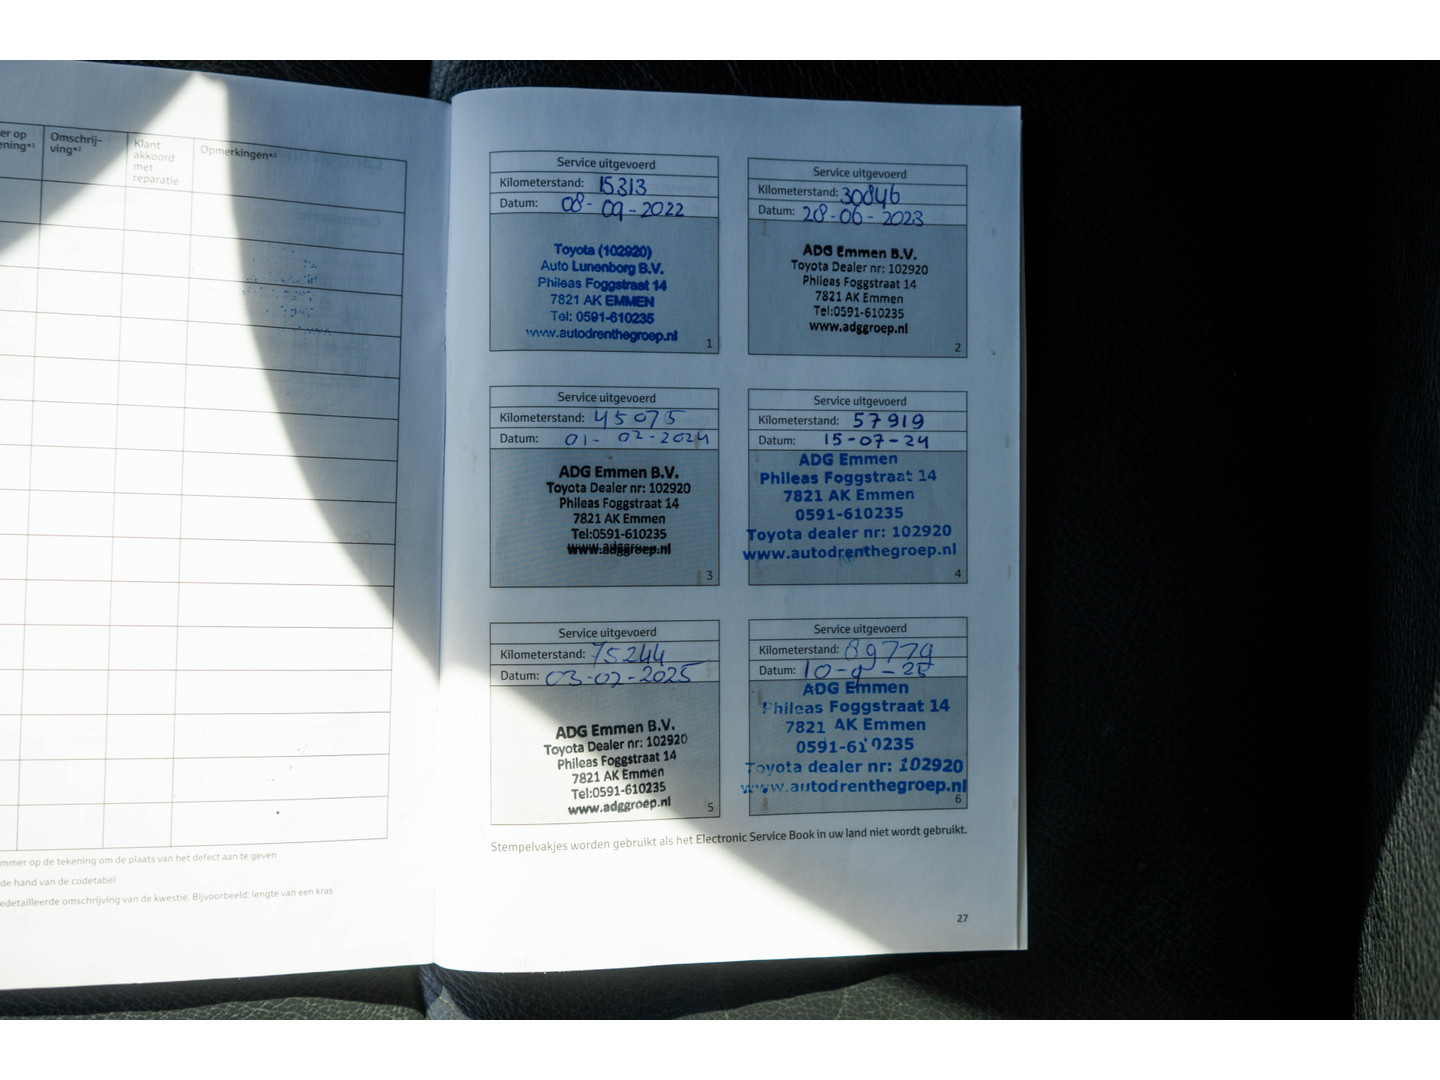 er op
ening*¹
Omschrij-
ving*²
Klant
akkoord
met
reparatie
Opmerkingen*³
mmer op de tekening om de plaats van het defect aan te geven
de hand van de codetabel
edetailleerde omschrijving van de kwestie. Bijvoorbeeld: lengte van een kras
Service uitgevoerd
Kilometerstand: 15313
Datum: 08-09-2022
Toyota (102920)
Auto Lunenborg B.V.
Phileas Foggstraat 14
7821 AK EMMEN
Tel: 0591-610235
www.autodrenthegroep.nl
1
Service uitgevoerd
Kilometerstand: 30846
Datum: 28-06-2023
ADG Emmen B.V.
Toyota Dealer nr: 102920
Phileas Foggstraat 14
7821 AK Emmen
Tel:0591-610235
www.adggroep.nl
2
Service uitgevoerd
Kilometerstand: 45075
Datum: 01-02-2024
ADG Emmen B.V.
Toyota Dealer nr: 102920
Phileas Foggstraat 14
7821 AK Emmen
Tel:0591-610235
www.adggroep.nl
3
Service uitgevoerd
Kilometerstand: 57919
Datum: 15-07-24
ADG Emmen
Phileas Foggstraat 14
7821 AK Emmen
0591-610235
Toyota dealer nr: 102920
www.autodrenthegroep.nl
4
Service uitgevoerd
Kilometerstand: 75244
Datum: 03-02-2025
ADG Emmen B.V.
Toyota Dealer nr: 102920
Phileas Foggstraat 14
7821 AK Emmen
Tel:0591-610235
www.adggroep.nl
5
Service uitgevoerd
Kilometerstand: 89779
Datum: 10-9-25
ADG Emmen
Phileas Foggstraat 14
7821 AK Emmen
0591-610235
Toyota dealer nr: 102920
www.autodrenthegroep.nl
6
Stempelvakjes worden gebruikt als het Electronic Service Book in uw land niet wordt gebruikt.
27